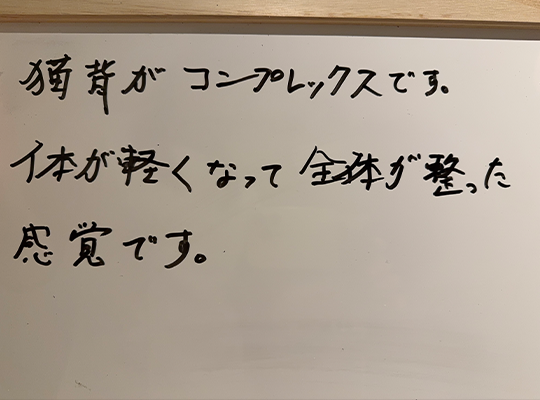 猫背がコンプレックスです。
体が軽くなって全体が整った
感覚です。